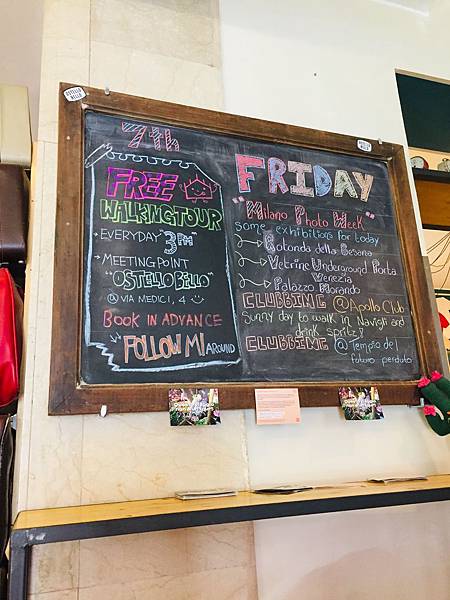 OSTELLO BELLO
7th
FREE
WALKINGTOUR
EVERYDAY 3PM
MEETING POINT
"OSTELLO BELLO"
VIA MEDICI, 4
BOOK IN ADVANCE
"FOLLOW MI AROUND
FRIDAY
"Milano Photo Week"
some exhibitions for today
Rotonda della Besana
Vetrine Underground Porta
Venezia
Palazzo Morando
CLUBBING @Apollo Club
Sunny day to walk in Navigli and
drink spritz?
CLUBBING @Tempio del
futuro perduto